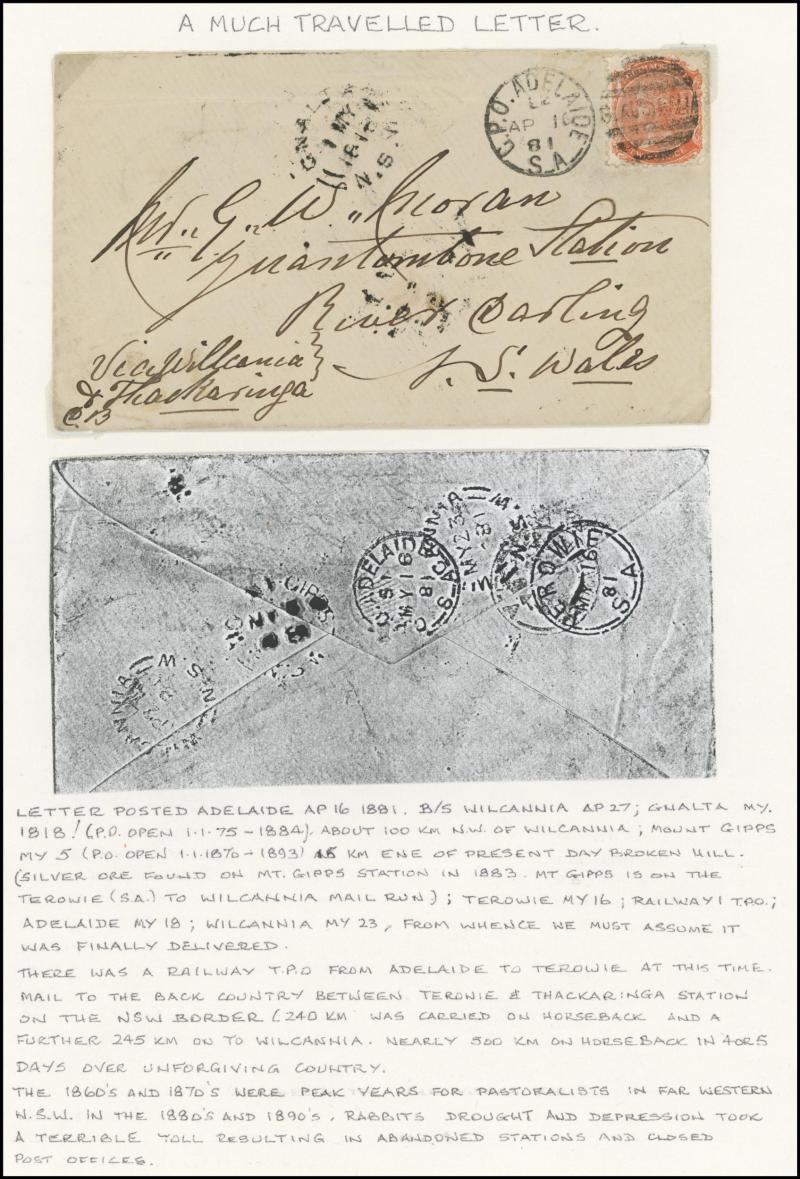 A MUCH TRAVELLED LETTER.
GNALTA
MY
1818
N.S.W
G.P.O. ADELAIDE
AP 16
81
S.A
Mr. G. W. Moran
Quantambone Station
River Darling
N. S. Wales
Via Wilcania
& Thackaringa
ADELAIDE
MY 18
81
MY 23
81
TEROWIE
MY 16
81
S A
GIPPS
N.S.W
LETTER POSTED ADELAIDE AP 16 1881. B/S WILCANNIA AP 27; GNALTA MY.
1818! (P.O. OPEN 1.1.75 - 1884). ABOUT 100 KM N.W. OF WILCANNIA; MOUNT GIPPS
MY 5 (P.O. OPEN 1.1.1870 - 1893) 15 KM ENE OF PRESENT DAY BROKEN HILL.
(SILVER ORE FOUND ON MT. GIPPS STATION IN 1883. MT GIPPS IS ON THE
TEROWIE (S.A.) TO WILCANNIA MAIL RUN); TEROWIE MY 16; RAILWAY 1 T.P.O.;
ADELAIDE MY 18; WILCANNIA MY 23, FROM WHENCE WE MUST ASSUME IT
WAS FINALLY DELIVERED.
THERE WAS A RAILWAY T.P.O FROM ADELAIDE TO TEROWIE AT THIS TIME.
MAIL TO THE BACK COUNTRY BETWEEN TEROWIE & THACKARINGA STATION
ON THE NSW BORDER (240 KM WAS CARRIED ON HORSEBACK AND A
FURTHER 245 KM ON TO WILCANNIA. NEARLY 500 KM ON HORSEBACK IN 4 OR 5
DAYS OVER UNFORGIVING COUNTRY.
THE 1860'S AND 1870'S WERE PEAK YEARS FOR PASTORALISTS IN FAR WESTERN
N.S.W. IN THE 1880'S AND 1890'S, RABBITS DROUGHT AND DEPRESSION TOOK
A TERRIBLE TOLL RESULTING IN ABANDONED STATIONS AND CLOSED
POST OFFICES.